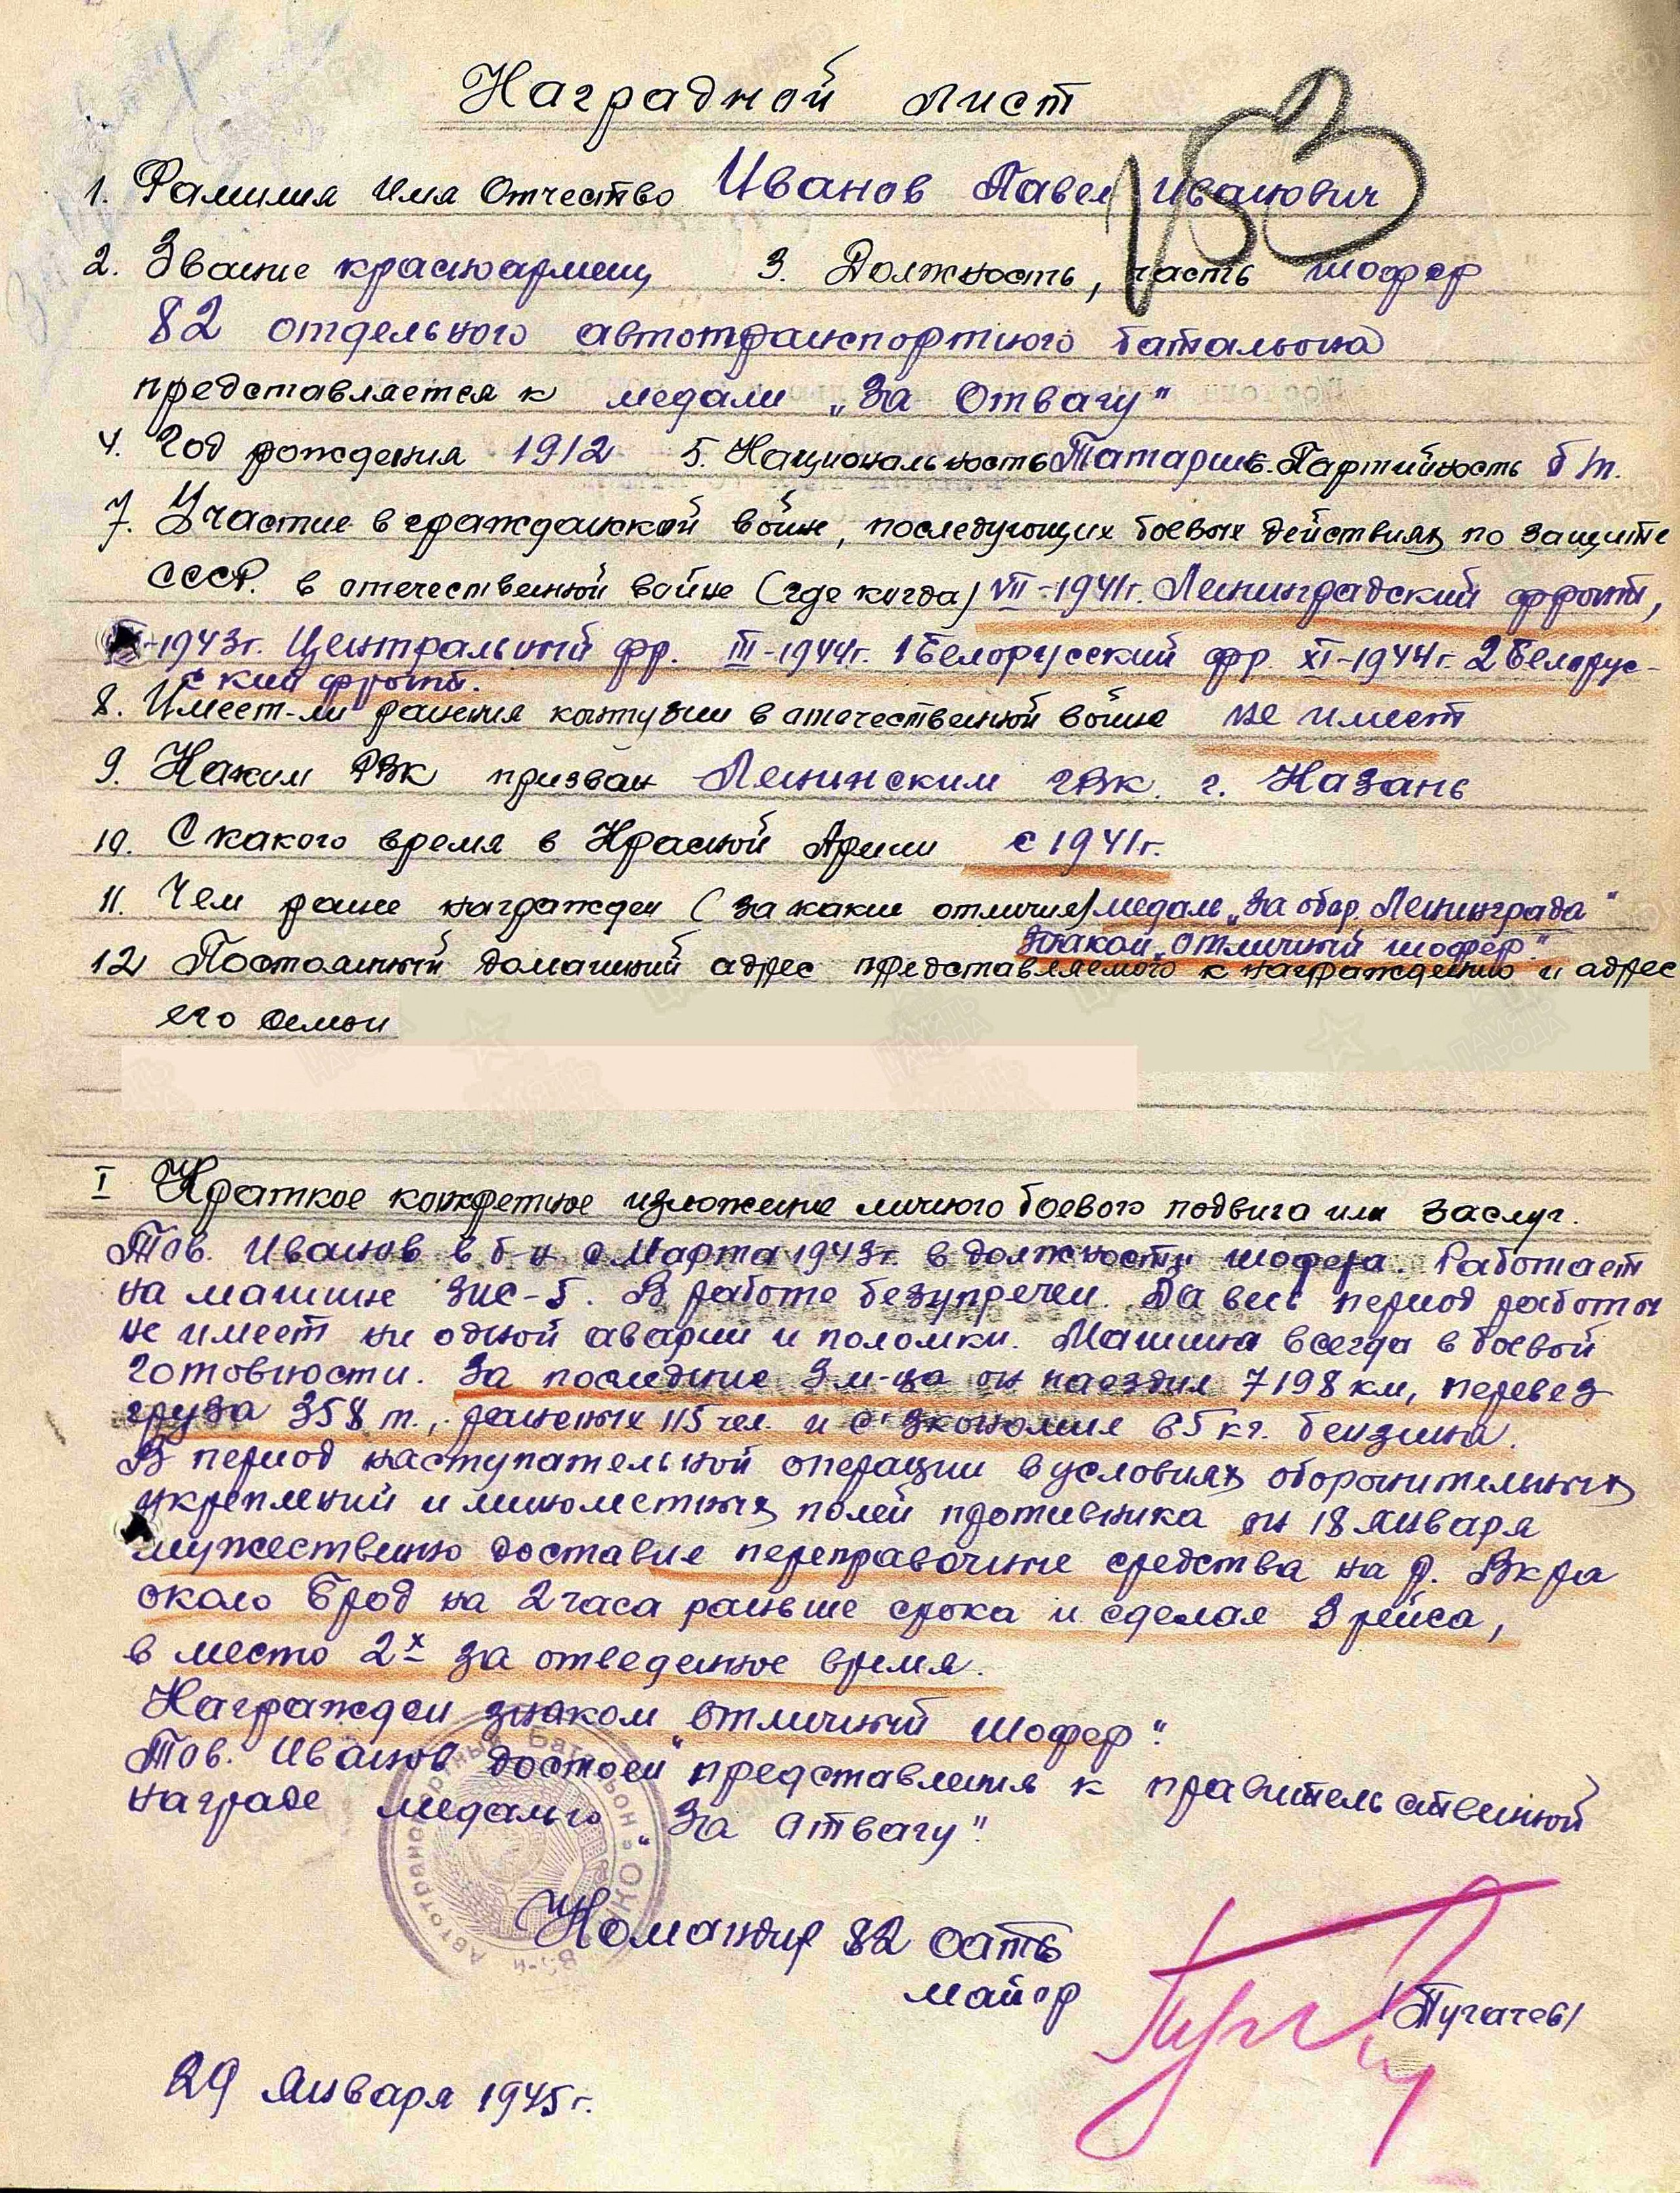 Наградной лист
153
1. Фамилия Имя Отчество Иванов Павел Иванович
2. Звание красноармеец 3. Должность, часть шофер
82 отдельного автотранспортного батальона
представляется к медали „За Отвагу"
4. Год рождения 1912 5. Национальность Татарин 6. Партийность б/п.
7. Участие в гражданской войне, последующих боевых действиях по защите
СССР. в отечественной войне (где когда) VII-1941г. Ленинградский фронт,
-1943г. Центральный фр. III-1944г. 1 Белорусский фр. XI-1944г. 2 Белорус-
ский фронт.
8. Имеет-ли ранения контузии в отечественной войне не имеет
9. Каким РВК призван Ленинским ГВК. г. Казань
10. С какого время в Красной Армии с 1941г.
11. Чем ранее награжден (за какие отличия) медаль „За обор. Ленинграда"
Знакой „Отличный шофер"
12 Постоянный домашний адрес представляемого к награждению и адрес
его семьи
I Краткое конкретное изложение личного боевого подвига или заслуг.
Тов. Иванов в б-н с Марта 1943г. в должности шофера. Работает
на машине ЗИС-5. В работе безупречен. За весь период работы
не имеет ни одной аварии и поломки. Машина всегда в боевой
готовности. За последние 3 м-ца он наездил 7198 км, перевез
груза 358 т., раненых 115 чел. и с'экономил 85 кг. бензина.
В период наступательной операции в условиях оборонительных
укреплений и минометных полей противника он 18 января
мужественно доставил переправочные средства на р. Вкра
около Брод на 2 часа раньше срока и сделал 3 рейса,
в место 2х за отведенное время.
Награжден знаком „Отличный шофер".
Тов. Иванов достоен представления к правительственной
награде медалью „За Отвагу".
Автотранспортный Батальон НКО
Командир 82 оатб
майор /Пугачев/
29 января 1945г.